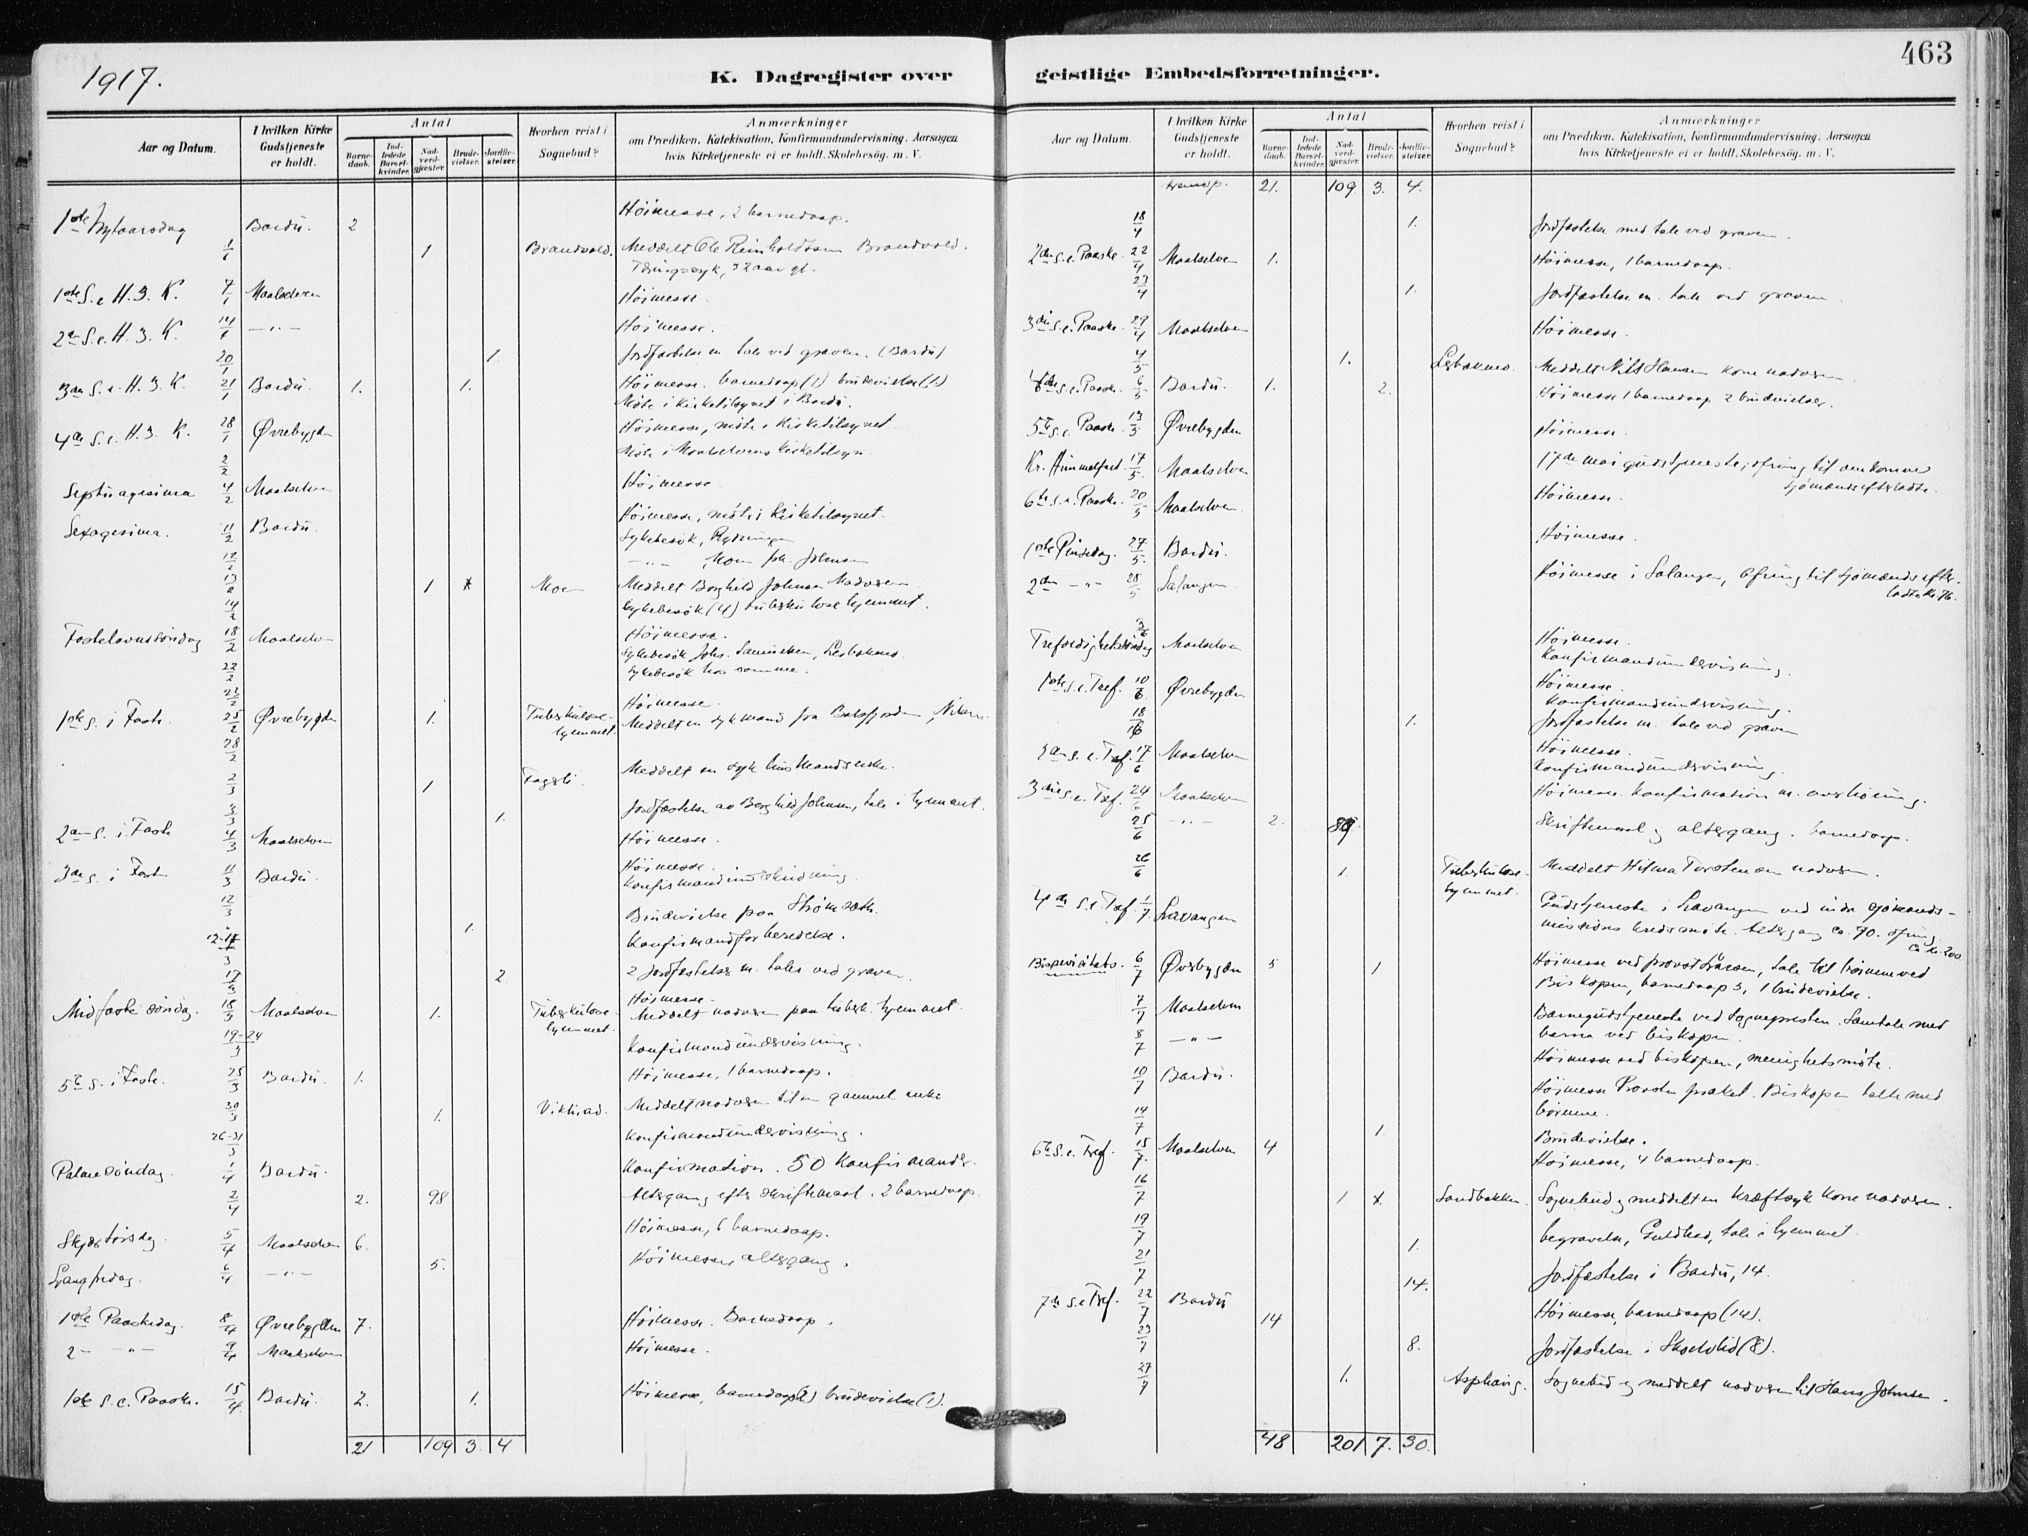 1917.
K. Dagregister over
Aar og Datum.
I hvilken Kirke Gudstjeneste er holdt.
Antal
Barne-daab.
Ind-ledede Barsel-kvinder.
Nad-verd-gjester.
Brude-vielser.
Jordfæ-stelser.
Hvorhen reist i Sognebud?
Anmærkninger
om Prædiken, Katekisation, Konfirmandundervisning, Aarsagen
hvis Kirketjeneste ei er holdt, Skolebesøg, m. V.
1ste Nytaarsdag Bardu. 2 Høimesse, 2 barnedaap.
1/1 1 Brandvold. Meddelt Ole Reinholdtsen Brandvold.
Tæringssyk, 32 aar gl.
1ste S. e. H. 3. K. 7/1 Maalselven Høimesse.
2den S. e. H. 3. K. 14/1 — " — Høimesse.
20/1 1. Jordfæstelse m. tale ved graven. (Bardu)
3die S. e. H. 3. K. 21/1 Bardu. 1. 1. Høimesse. barnedaap (1) brudevielse (1)
Møte i kirketilsynet i Bardu.
4de S. e. H. 3. K. 28/1 Øvrebygden Høimesse, møte i kirketilsynet
2/2 Møte i Maalselvens kirketilsyn.
Septuagesima 4/2 Maalselven Høimesse.
Sexagesima. 11/2 Bardu. Høimesse, møte i kirketilsynet.
Sykebesøk, Rydningen
12/2 — " — Moen, Joh. Johnsen
13/2 1 Moen Meddelt Borghild Johnsen Nadveren.
14/2 Sykebesøk (4) tuberkulosehjemmet.
Fastelavnssøndag 18/2 Maalselven Høimesse.
Sykebesøk Johs.
22/2 Sykebesøk hos samme.
Høimesse.
1ste S. i Faste. 25/2 Øvrebygden 1. Tuberkulose-hjemmet. Meddelt en sykmand fra Balsfjorden
28/2
2/3 1 Fagerli. Meddelt en syk husmandsenke.
3/3 1. Jordfæstelse av Borghild Johnsen, tale i hjemmet.
2den S. i Faste 4/3 Maalselven Høimesse.
3die S. i Faste 11/3 Bardu. Høimesse.
Konfirmandindskrivning.
12/3 1. Brudevielse paa Strømsæth.
12-17/3 Konfirmandforberedelse.
17/3 2. 2 Jordfæstelser m. taler ved graven.
Midfaste søndag. 18/3 Maalselven 1. Tuberkulose-hjemmet. Høimesse.
Meddelt nadveren paa tuberk. hjemmet.
19-24/3 Konfirmandundervisning.
5te S. i Faste. 25/3 Bardu. 1. Høimesse, 1 barnedaap.
30/3 1. Viktisad. Meddelt nadveren til en gammel enke
26-31/3 Konfirmandundervisning.
Palmesøndag. 1/4 Bardu. Konfirmation. 50 Konfirmander.
2/4 2. 98 Altergang efter skriftemaal. 2 barnedaap.
Skjærtorsdag. 5/4 Maalselven 6. Høimesse, 6 barnedaap.
Langfredag. 6/4 — " — 5. Høimesse, altergang.
1ste Paaskedag. 8/4 Øvrebygden 7. Høimesse. Barnedaap.
2 — " — 9/4 Maalselven Høimesse.
1ste S. e. Paaske. 15/4 Bardu. 2. 1. Høimesse, barnedaap (2) brudevielse (1).
21 109 3. 4
463
geistlige Embedsforretninger.
Aar og Datum.
I hvilken Kirke Gudstjeneste er holdt.
Antal
Barne-daab.
Ind-ledede Barsel-kvinder.
Nad-verd-gjester.
Brude-vielser.
Jordfæ-stelser.
Hvorhen reist i Sognebud?
Anmærkninger
om Prædiken, Katekisation, Konfirmandundervisning, Aarsagen
hvis Kirketjeneste ei er holdt, Skolebesøg, m. V.
transp. 21. 109 3. 4.
18/4 1. Jordfæstelse med tale ved graven.
2den S. e. Paaske. 22/4 Maalselven 1. Høimesse, 1 barnedaap.
23/4 1. Jordfæstelse m. tale ved graven.
3die S. e. Paaske. 29/4 Maalselven Høimesse.
4/5 1. Meddelt Nils Hansen kone nadveren.
4de S. e. Paaske. 6/5 Bardu. 1. 2. Høimesse 1 barnedaap 2 brudevielser.
5te S. e. Paaske. 13/5 Øvrebygden Høimesse.
Kr. Himmelfart. 17/5 Maalselven 17de mai gudstjeneste; ofring til omkomne
sjømænds efterladte.
6te S. e. Paaske. 20/5 Maalselven. Høimesse.
1ste Pinsedag. 27/5 Bardu. Høimesse.
2den — " — 28/5 Salangen Høimesse i Salangen, Ofring til Sjømænds efter-
ladte Kr 76.
Trefoldighetssøndag 3/6 Maalselven Høimesse.
Konfirmandundervisning.
1ste S. e. Tref. 10/6 Øvrebygden Høimesse.
Konfirmandundervisning.
18/6 1. Jordfæstelse m. tale ved graven
2den S. e. Tref. 17/6 Maalselven Høimesse.
Konfirmandundervisning.
3die S. e. Tref. 24/6 Maalselven Høimesse. Konfirmation m. overhøring.
25/6 — " — 2. 89 Skriftemaal og altergang. barnedaap.
26/6 1. Tuberkulose-hjemmet. Meddelt Hilma Torstensen nadveren.
4de S. e. Tref. 1/7 Lavangen Gudstjeneste i Lavangen ved indre sjømands-
missions kredsmøte. Altergang ca. 70. ofring
ca. kr. 200
Bispevisitats. 6/7 Øvrebygden 5 1 Høimesse ved provst Larsen, tale til børnene ved
Biskopen, barnedaap 3, 1 brudevielse.
7/7 Maalselven Barnegudstjeneste ved Sognepresten. Samtale med
barna ved biskopen.
8/7 — " — Høimesse ved biskopen, menighetsmøte.
10/7 Bardu. Høimesse Provsten præket. Biskopen talte med
børnene.
14/7 1 Brudevielse.
6te S. e. Tref. 15/7. Maalselven 4 Høimesse, 4 barnedaap.
16/7 1 Sandbakken. Sognebud og meddelt en kræftsyk kone nadveren.
19/7 1. begravelse, Guldhav, tale i hjemmet.
21/7 14. Jordfæstelse i Bardu, 14.
7de S. e. Tref. 22/7 Bardu 14 Høimesse, barnedaap (14).
23/7 8. Jordfæstelse i Skoelvlid (8).
27/7 1. Asphaug. Sognebud og meddelt nadveren til Hans Johnsen.
48 201 7. 30.